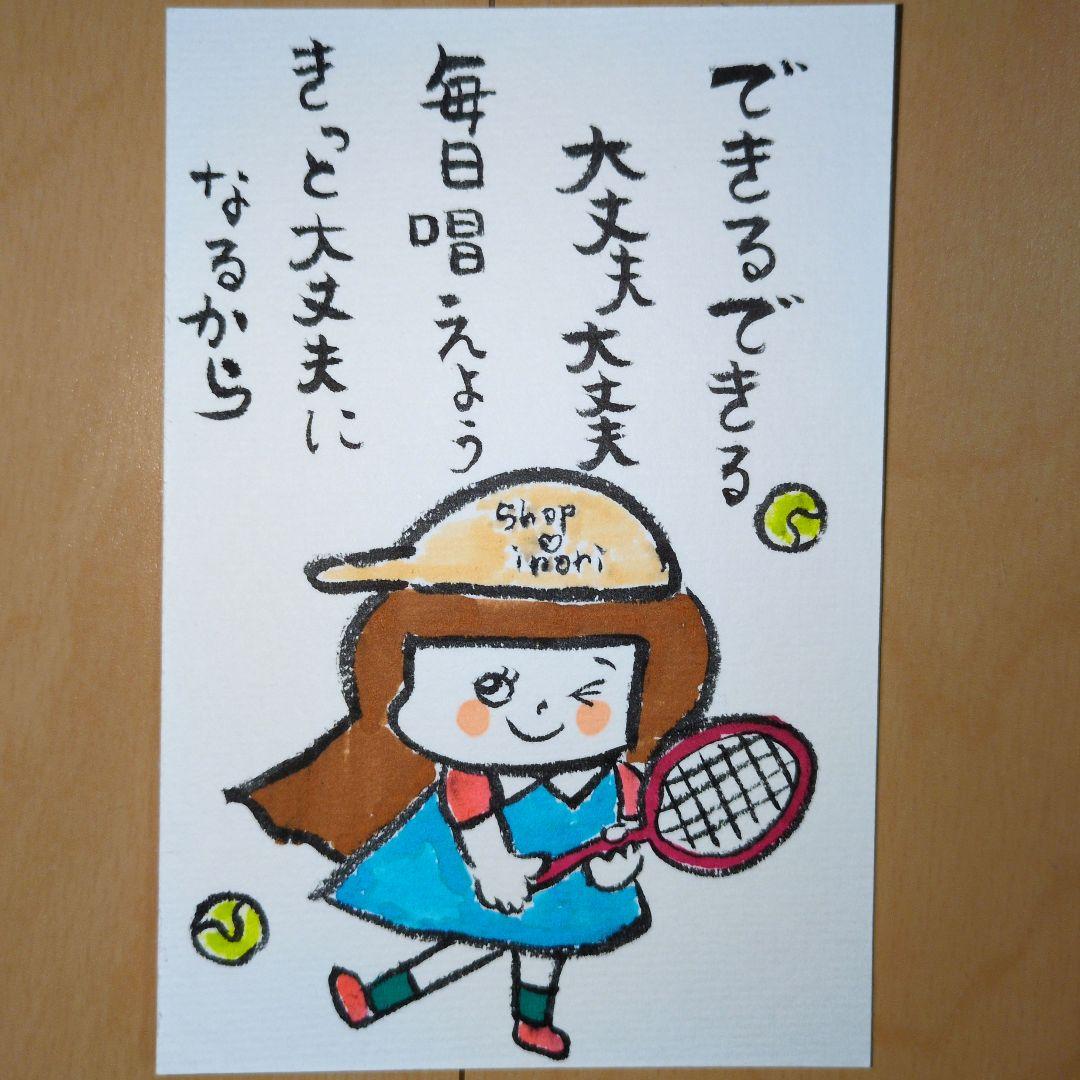 できるできる
大丈夫大丈夫
毎日唱えよう
きっと大丈夫に
なるから
Shop
inori